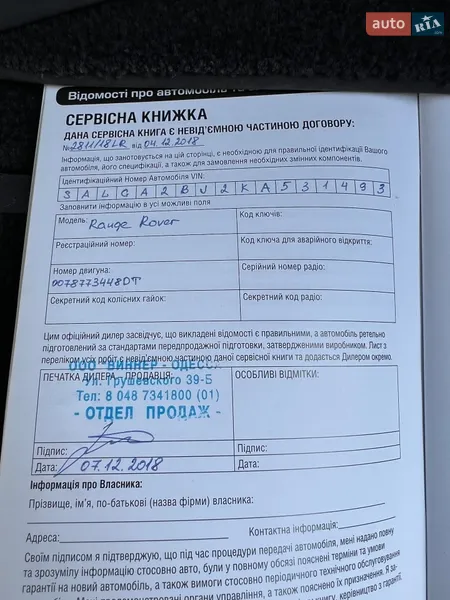 auto RIA
Відомості про автомобіль та
СЕРВІСНА КНИЖКА
ДАНА СЕРВІСНА КНИГА Є НЕВІД'ЄМНОЮ ЧАСТИНОЮ ДОГОВОРУ:
№2811/18LR від 04.12.2018
Інформація, що занотовується на цій сторінці, є необхідною для правильної ідентифікації Вашого
автомобіля, його специфікації, а також для замовлення необхідних змінних компонентів.
Ідентифікаційний Номер Автомобіля VIN:
S A L G A 2 B J 2 K A 5 3 1 4 9 3
Заповнити інформацію в усі можливі поля
Модель: Range Rover
Код ключів:
Реєстраційний номер:
Код ключа для аварійного відкриття:
Номер двигуна:
Серійний номер радіо:
0078773448DT
Секретний код колісних гайок:
Секретний код радіо:
Цим офіційний дилер засвідчує, що викладені відомості є правильними, а автомобіль ретельно
підготовлений за стандартами передпродажної підготовки, затвердженими виробником. Лист з
переліком усіх робіт є невід'ємною частиною даної сервісної книги та додається Дилером окремо.
ПЕЧАТКА ДИЛЕРА – ПРОДАВЦЯ:
ОСОБЛИВІ ВІДМІТКИ:
ООО "ВИННЕР - ОДЕССА
ул. Грушевского 39-Б
Тел: 8 048 7341800 (01)
- ОТДЕЛ ПРОДАЖ -
Підпис:
Підпис:
Дата: 07.12.2018
Дата:
Інформація про Власника:
Прізвище, ім'я, по-батькові (назва фірми) власника:
Адреса:
Контактна інформація:
Своїм підписом я підтверджую, що під час процедури передачі автомобіля, мені надано повну
та зрозумілу інформацію стосовно авто, були у повному обсязі пояснені терміни та умови
гарантії на новий автомобіль, а також вимоги стосовно періодичного технічного обслуговування
органи управління, а також пояснено їх призначення. Я за-
книги, керівництво з гарантії.